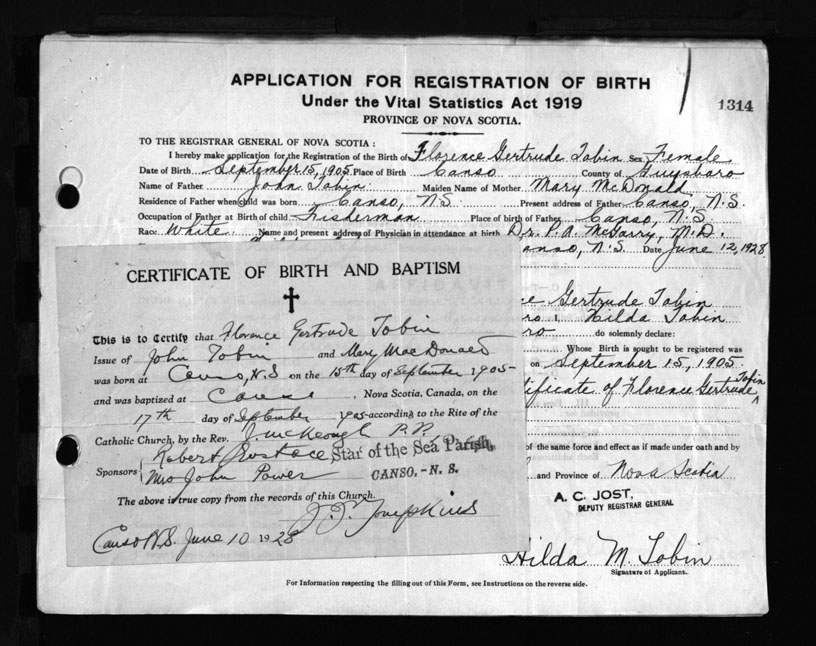 APPLICATION FOR REGISTRATION OF BIRTH
Under the Vital Statistics Act 1919
1314
PROVINCE OF NOVA SCOTIA.
TO THE REGISTRAR GENERAL OF NOVA SCOTIA :
I hereby make application for the Registration of the Birth of Florence Gertrude Tobin Sex Female
Date of Birth September 15, 1905 Place of Birth Canso County of Guysboro
Name of Father John Tobin Maiden Name of Mother Mary McDonald
Residence of Father when child was born Canso, N.S. Present address of Father Canso, N.S.
Occupation of Father at Birth of child Fisherman Place of birth of Father Canso, N.S.
Race White Name and present address of Physician in attendance at birth Dr. P.A. McGarry, M.D.
anso, N.S. Date June 12, 1928
ce Gertrude Tobin
ro I, Hilda Tobin
ro do solemnly declare:
Whose Birth is sought to be registered was
on September 15, 1905
tificate of Florence Gertrude Tobin
of the same force and effect as if made under oath and by
and Province of Nova Scotia
A. C. JOST,
DEPUTY REGISTRAR GENERAL
Hilda M. Tobin
Signature of Applicant.
For Information respecting the filling out of this Form, see Instructions on the reverse side.
CERTIFICATE OF BIRTH AND BAPTISM
This is to Certify that Florence Gertrude Tobin
Issue of John Tobin and Mary MacDonald
was born at Canso, N.S on the 15th day of September 1905
and was baptized at Canso, Nova Scotia, Canada, on the
17th day of September 1905 according to the Rite of the
Catholic Church, by the Rev. J. McKeough P.P.
Sponsors Robert Eustace
Mrs John Power
Star of the Sea Parish,
CANSO, - N. S.
The above is true copy from the records of this Church.
J. J. Tompkins
Canso N.S. June 10 1928